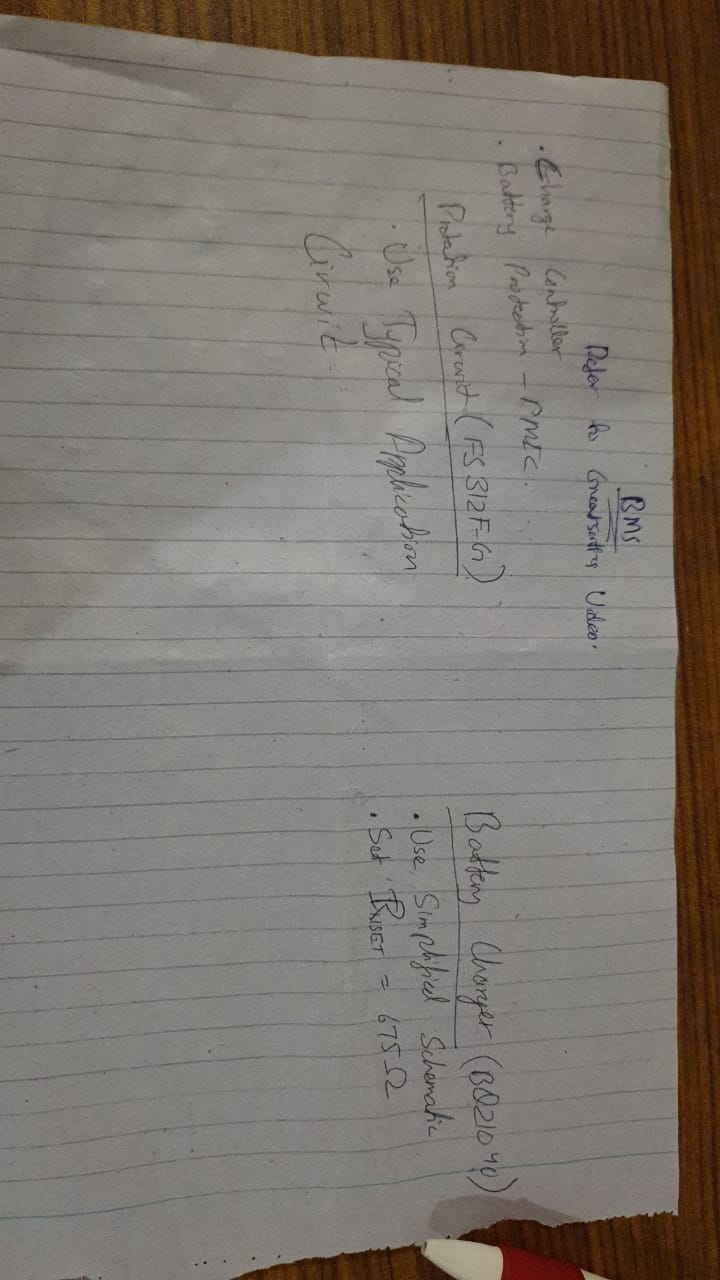 BMS
Refer to Greatscott's Video.
• Charge Controller
• Battery Protection - PMIC.
Protection Circuit (FS312F-G)
• Use Typical Application
Circuit.
Battery Charger (BQ21040)
• Use Simplified Schematic
• Set RISET = 675Ω